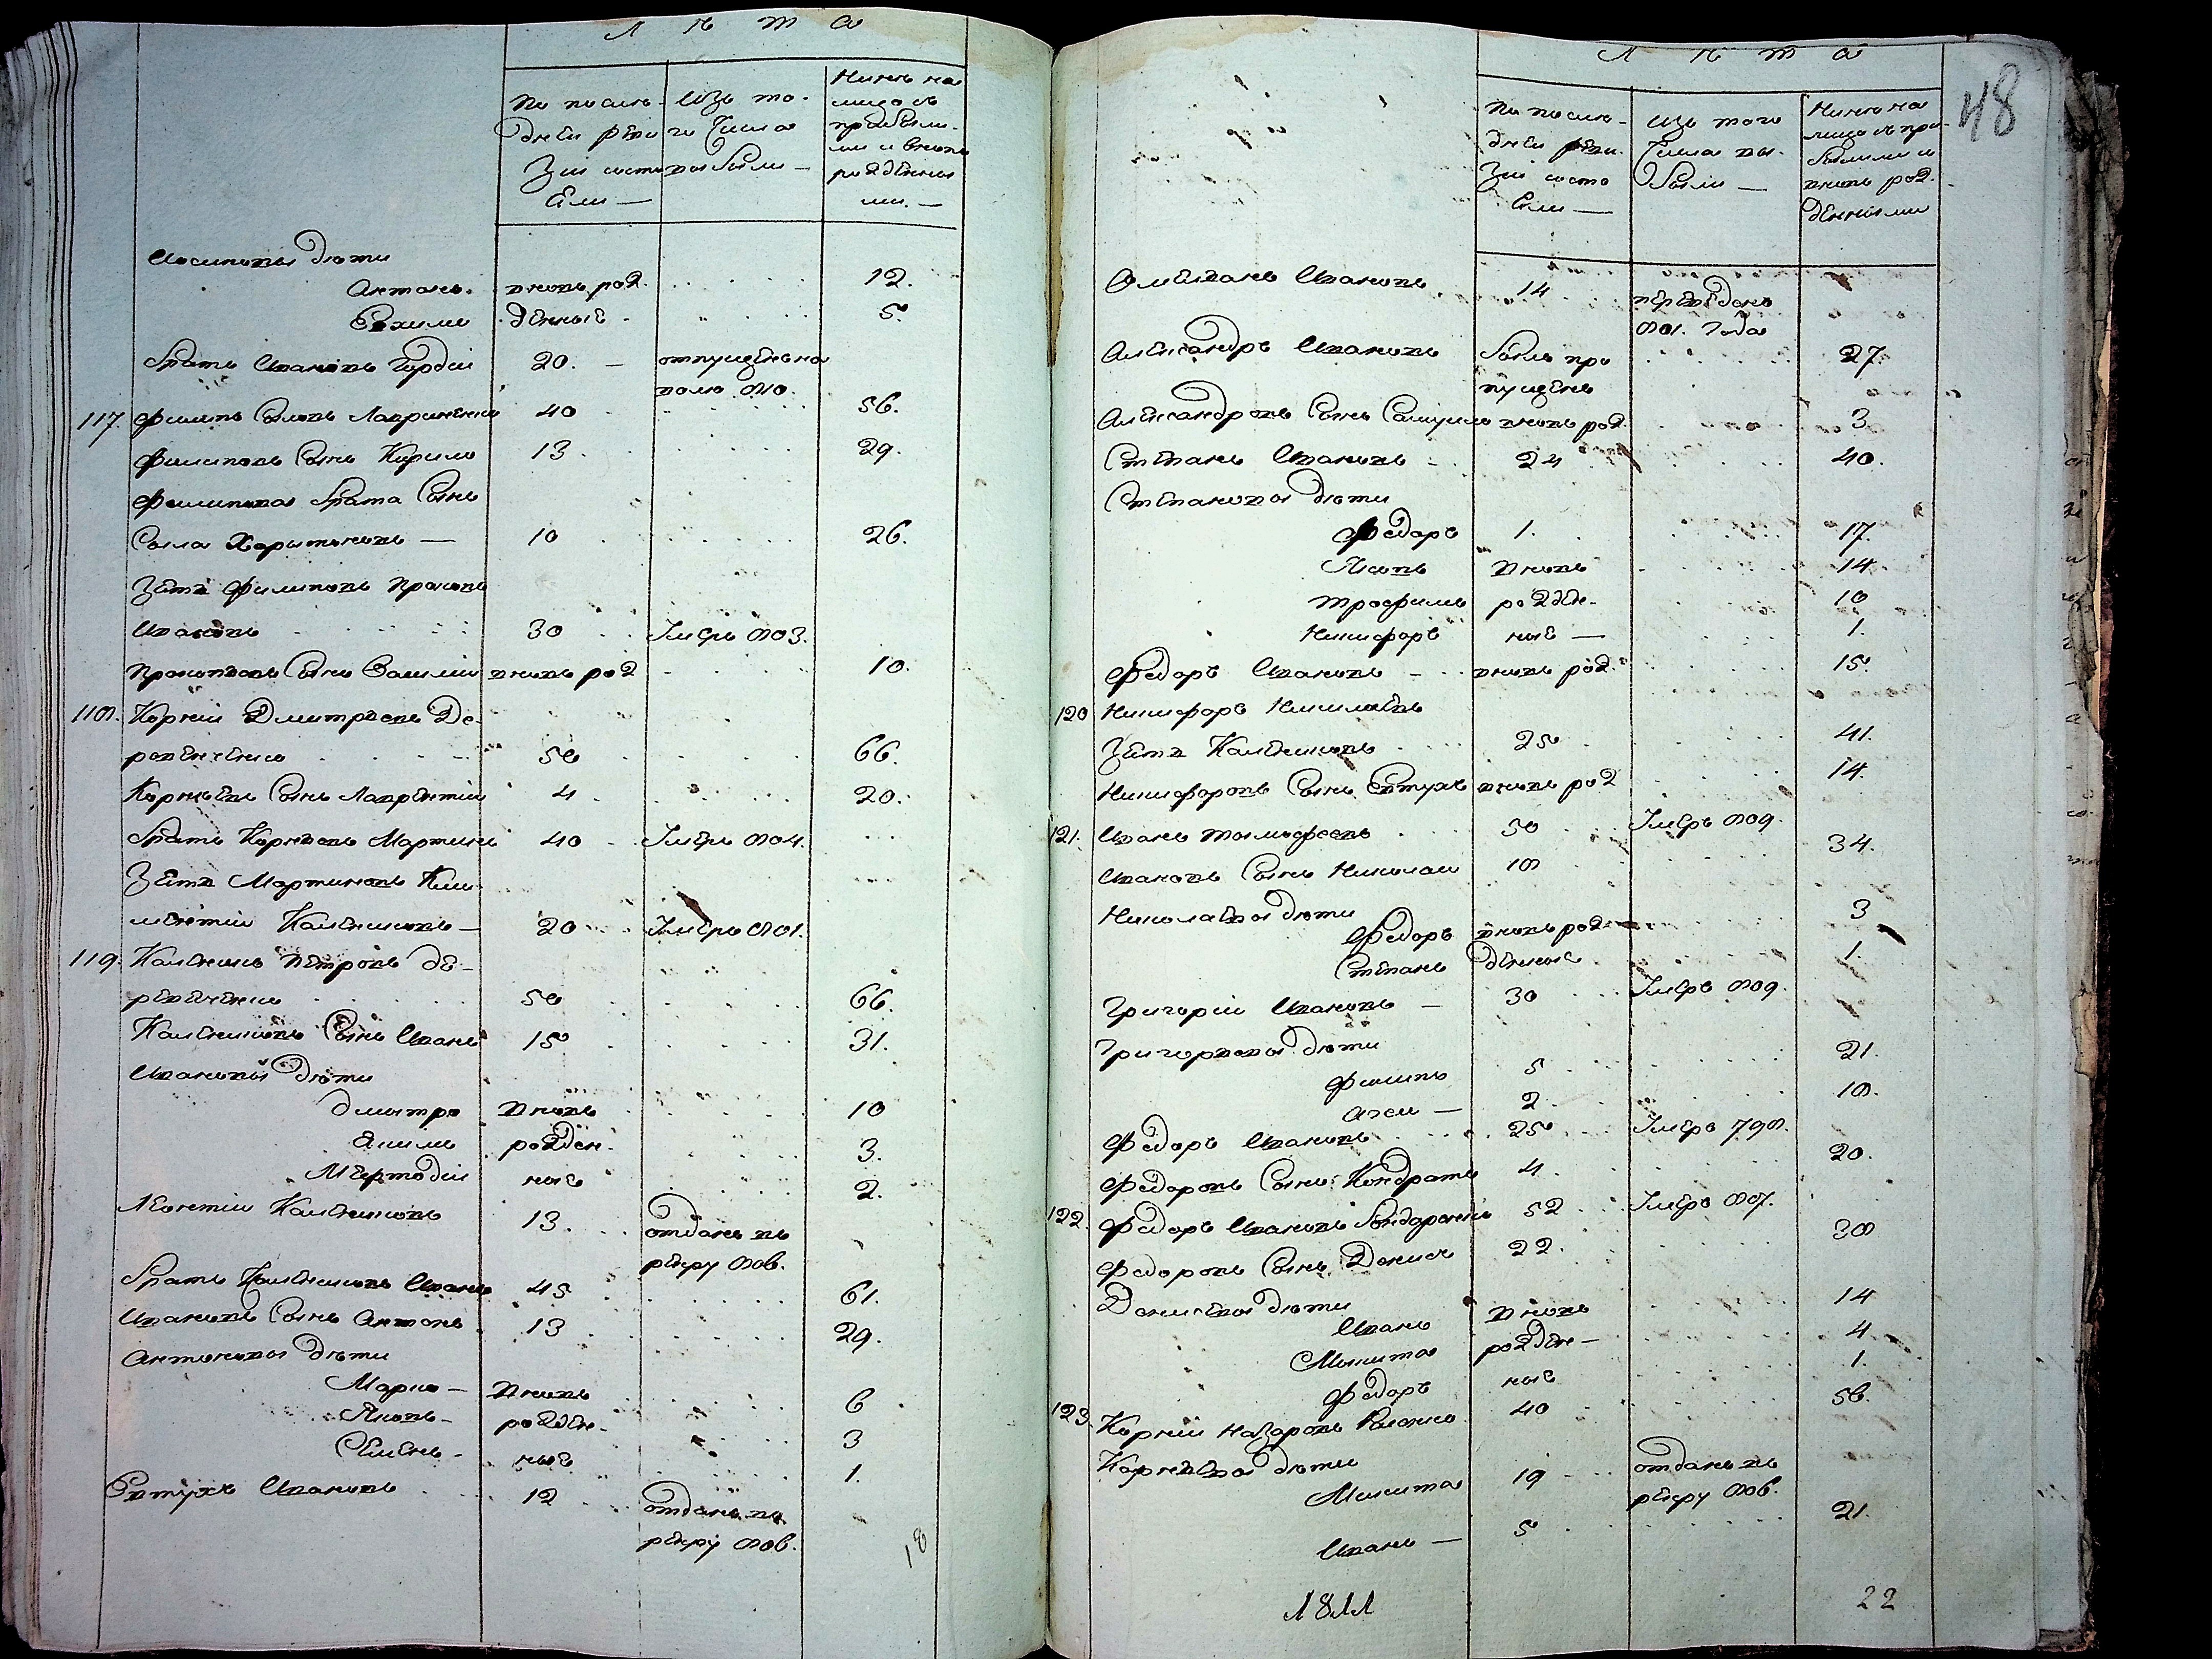 Лѣта
По послѣ- Изъ то- Нынѣ на
дней реви го числа лицо съ
зіи состо выбыли — прибылы-
яли — ми и вновь
рожденны
ми. —
Иосиповы дѣти
Антонъ. вновь рож. 12.
Ефимъ денные 5.
Братъ Ивановъ Гордій 20. — отпущенъ на
волю 810.
117. Филипъ Савовъ Лавриненко 40 56.
Филиповъ Сынъ Кирило 13 29.
Филипова брата Сынъ
Сава Харитоновъ — 10 26.
Зять Филиповъ Прокопъ
Ивановъ 30 Умеръ 803.
Прокопіевъ Сынъ Василій вновь рож 10.
118. Корній Дмитріевъ Де-
ревенченко 50 66.
Корніевъ Сынъ Лаврентій 4 20.
Братъ Корніевъ Мартинъ 40 Умеръ 804.
Зять Мартиновъ Кли-
ментій Калениковъ — 20 Умеръ 801.
119. Каленикъ Петровъ де-
ревенченко 50 66.
Калениковъ Сынъ Иванъ 15 31.
Ивановы дѣти
Дмитро вновь 10
Якимъ рожден- 3.
ные 2.
Леонтій Калениковъ 13. отданъ въ
рекру 806.
Братъ Калениковъ Иванъ 45 61.
Ивановъ Сынъ Антонъ 13 29.
Антоновы дѣти
Марко — вновь 6
Яковъ — рожден- 3
Семенъ — ные 1.
Евтухъ Ивановъ 12 отданъ въ
рекру 806.
18
Лѣта
48
По послѣ- изъ того Нынѣ на
дней реви- числа вы- лицо съ при-
зіи состо были — былыми и
яли — вновь рож-
денными
Омелянъ Ивановъ 14 переведенъ
801. года
Александръ Ивановъ былъ про 27.
пущенъ
Александровъ Сынъ Самуило вновь рож. 3
Степанъ Ивановъ — 24 40.
Степановы дѣти
Федоръ 1. 17.
Яковъ вновь 14
Трофимъ рожден- 10
Никифоръ ные — 1.
Федоръ Ивановъ — вновь рож. 15.
120 Никифоръ
Зять Калениковъ 25 41.
Никифоровъ Сынъ Евтухъ вновь рож 14.
121. Иванъ Тымофеевъ 50 Умеръ 809.
Ивановъ Сынъ Николай 18 34.
Николаевы дѣти
Федоръ вновь рож- 3
Степанъ денные 1.
Григорій Ивановъ — 30 Умеръ 809.
Григорьевы дѣти
Филипъ 5 21.
— 2 18.
Федоръ Ивановъ 25 Умеръ 798.
Федоровъ Сынъ Кондратъ 4 20.
122. Федоръ Ивановъ Бондаренко 52 Умеръ 807.
Федоровъ Сынъ Денисъ 22. 38
Денисовы дѣти
Иванъ вновь 14
Микита рожден- 4
Федоръ ные 1.
123. Корній Назаровъ 40 56.
Корніевы дѣти
Микита 19 отданъ въ
рекру 806.
Иванъ — 5 21.
1811
22